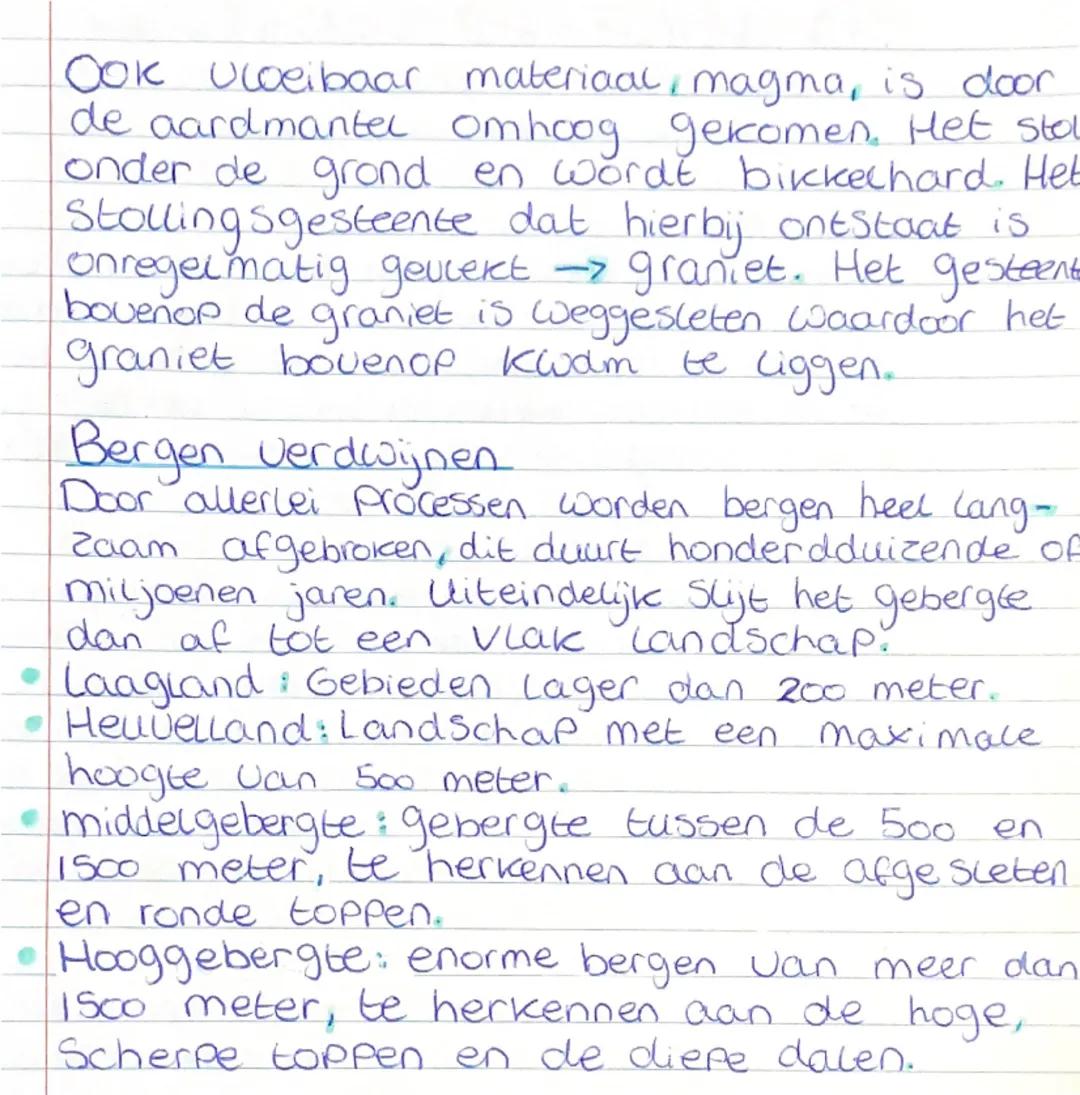 Ook vloeibaar materiaal, magma, is door
de aardmantel omhoog gekomen. Het stol
onder de grond en wordt bikkelhard. Het
Stollingsgesteente dat hierbij ontstaat is
onregelmatig gevlekt -> graniet. Het gesteent
bovenop de graniet is weggesleten waardoor het
graniet bovenop kwam te liggen.
Bergen verdwijnen
Door allerlei processen worden bergen heel lang-
zaam afgebroken, dit duurt honderdduizende of
miljoenen jaren. Uiteindelijk slijt het gebergte
dan af tot een vlak landschap.
• Laagland: Gebieden lager dan 200 meter.
• Heuvelland: Landschap met een maximale
hoogte van 500 meter.
• middelgebergte: gebergte tussen de 500 en
1500 meter, te herkennen aan de afgesleten
en ronde toppen.
• Hooggebergte: enorme bergen van meer dan
1500 meter, te herkennen aan de hoge,
Scherpe toppen en de diepe dalen.